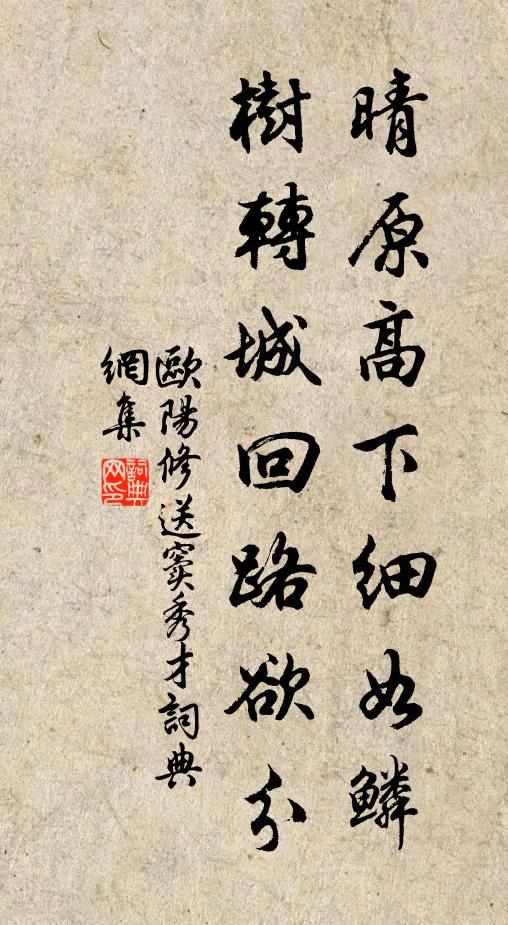 晴原高下細如鱗
樹轉城回路欲分
歐陽修送竇秀才詞典
網集
詞典
网印